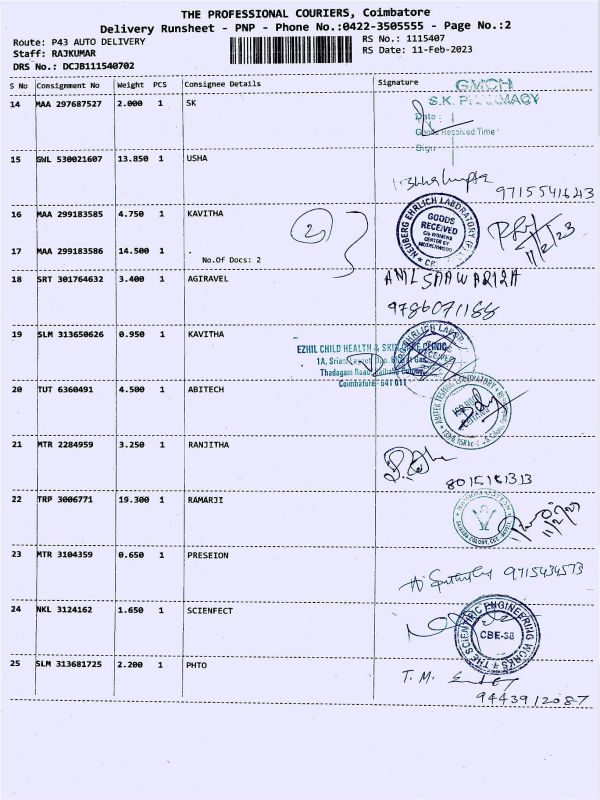 THE PROFESSIONAL COURIERS, Coimbatore
Delivery Runsheet - PNP - Phone No.:0422-3505555 - Page No.:2
Route: P43 AUTO DELIVERY
RS No.: 1115407
Staff: RAJKUMAR
RS Date: 11-Feb-2023
DRS No.: DCJB111540702
S No Consignment No Weight PCS Consignee Details Signature
GMCH
S.K. PHARMACY
14 MAA 297687527 2.000 1 SK
Date :
Goods Received Time
Sign
15 GWL 530021607 13.850 1 USHA
9715541643
16 MAA 299183585 4.750 1 KAVITHA
2
NEUBERG EHRLICH LABORATORY
GOODS
RECEIVED
C/o WOMENS
CENTER BY
MOTHERHOOD
11/2/23
17 MAA 299183586 14.500 1 .
No.Of Docs: 2
18 SRT 301764632 3.400 1 AGIRAVEL
ANIL SAAWARIYA
9786071188
19 SLM 313650626 0.950 1 KAVITHA
EZHIL CHILD HEALTH & SKIN CARE CLINIC
Thadagam Road, Saibaba Colony,
Coimbatore - 641 011
20 TUT 6360491 4.500 1 ABITECH
21 MTR 2284959 3.250 1 RANJITHA
8015161313
22 TRP 3006771 19.300 1 RAMARJI
11/2/23
23 MTR 3104359 0.650 1 PRESEION
9715434573
24 NKL 3124162 1.650 1 SCIENFECT
THE SCIENTIFIC ENGINEERING WORKS
CBE-38
25 SLM 313681725 2.200 1 PHTO
T. M.
9443912087